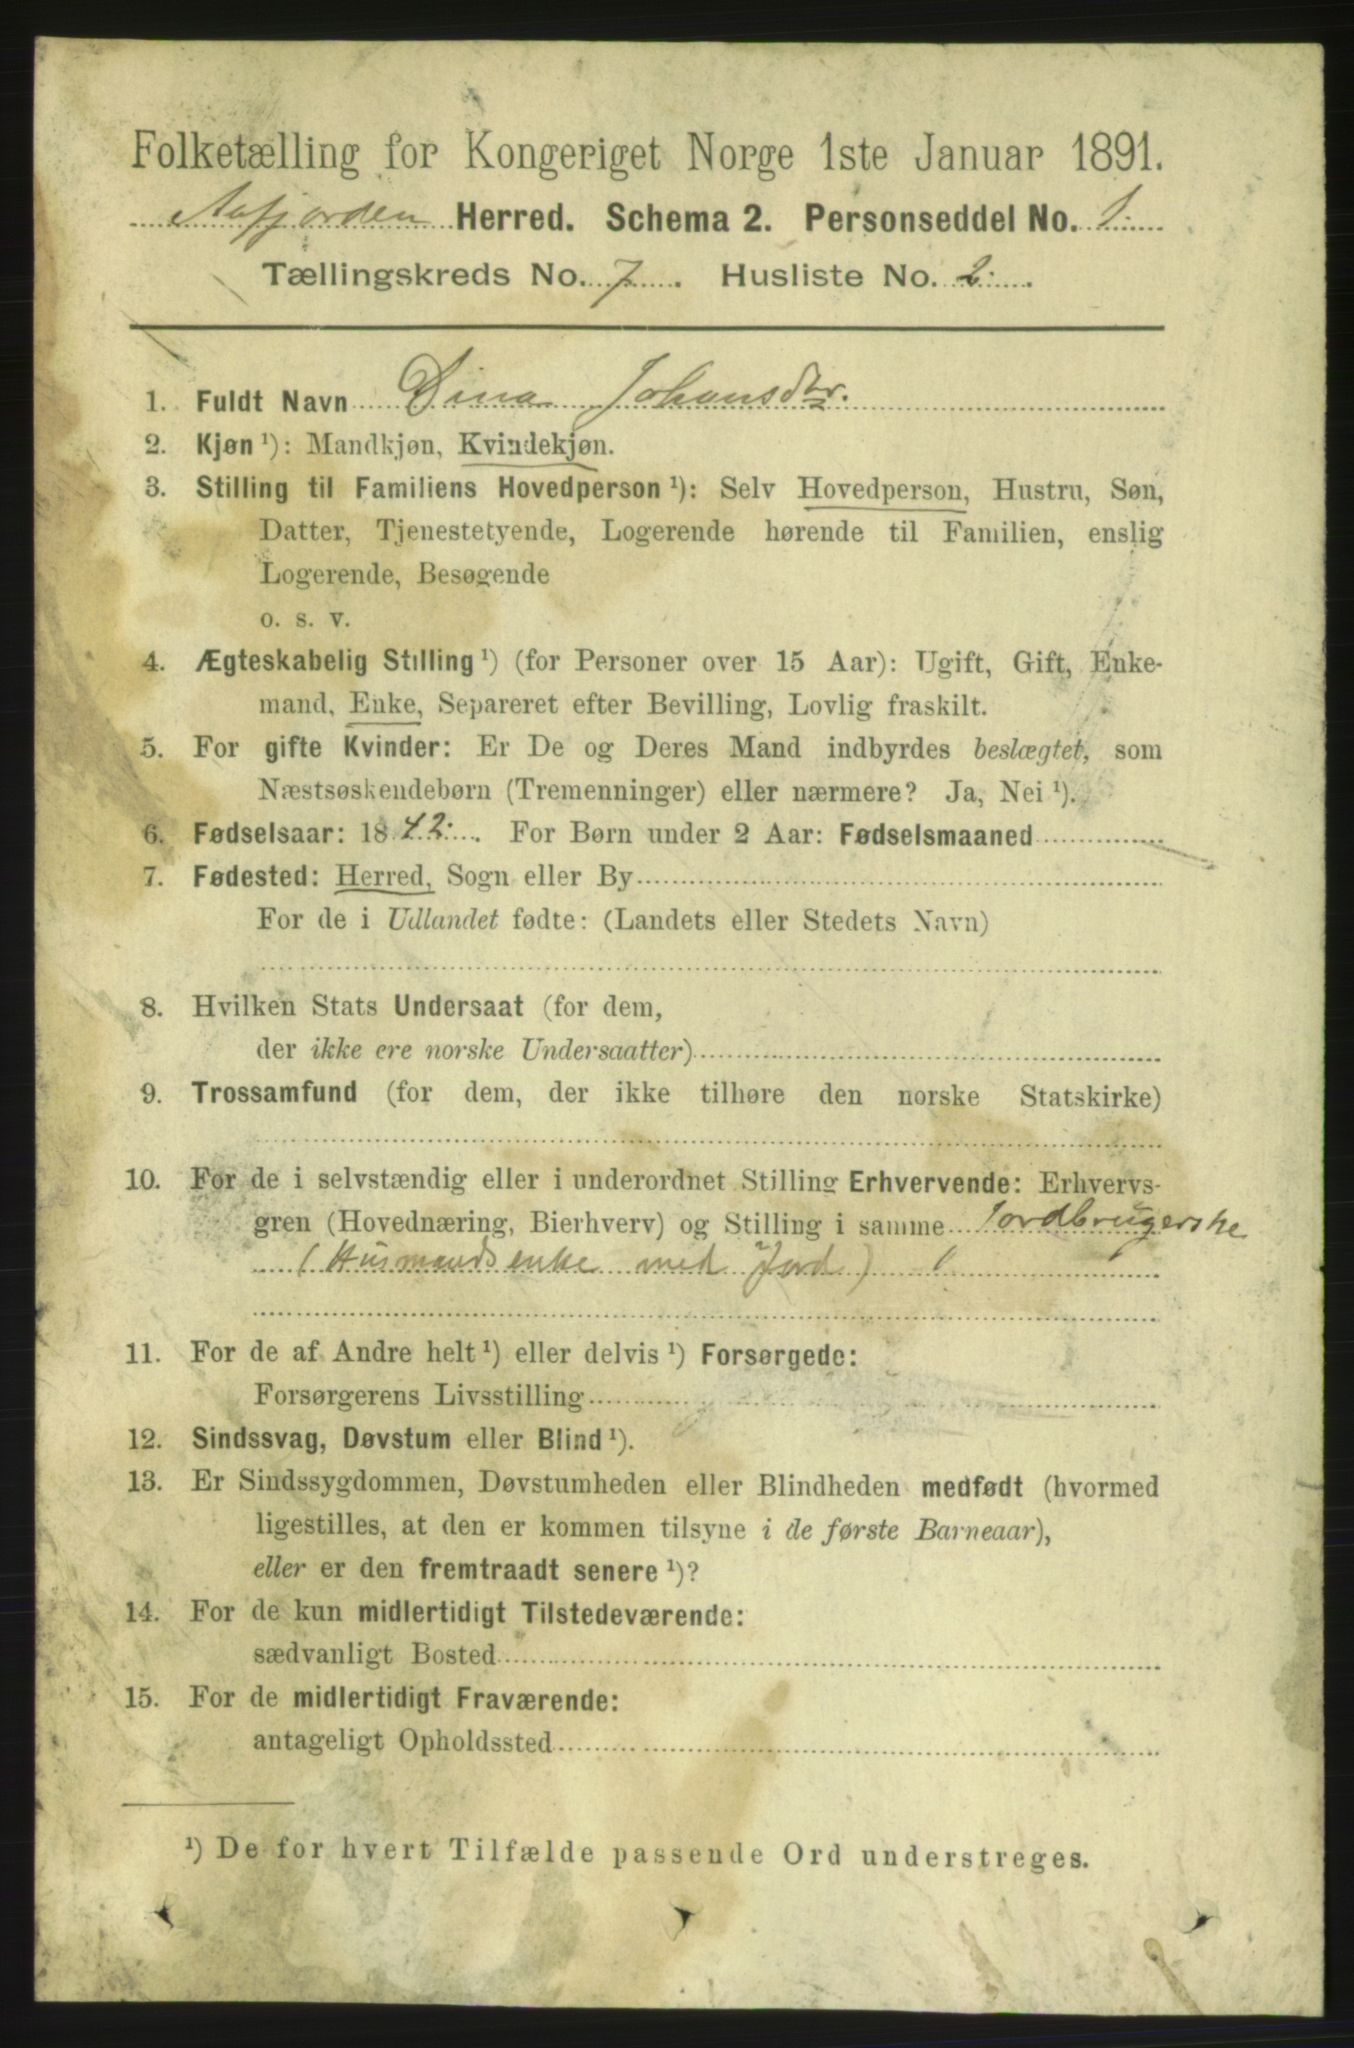 Folketælling for Kongeriget Norge 1ste Januar 1891.
Aafjorden Herred. Schema 2. Personseddel No. 1.
Tællingskreds No. 7. Husliste No. 2.
1. Fuldt Navn Dina Johansdtr.
2. Kjøn ¹): Mandkjøn, Kvindekjøn.
3. Stilling til Familiens Hovedperson ¹): Selv Hovedperson, Hustru, Søn,
Datter, Tjenestetyende, Logerende hørende til Familien, enslig
Logerende, Besøgende
o. s. v.
4. Ægteskabelig Stilling ¹) (for Personer over 15 Aar): Ugift, Gift, Enke-
mand, Enke, Separeret efter Bevilling, Lovlig fraskilt.
5. For gifte Kvinder: Er De og Deres Mand indbyrdes beslægtet, som
Næstsøskendebørn (Tremenninger) eller nærmere? Ja, Nei ¹).
6. Fødselsaar: 1842. For Børn under 2 Aar: Fødselsmaaned
7. Fødested: Herred, Sogn eller By
For de i Udlandet fødte: (Landets eller Stedets Navn)
8. Hvilken Stats Undersaat (for dem,
der ikke ere norske Undersaatter)
9. Trossamfund (for dem, der ikke tilhøre den norske Statskirke)
10. For de i selvstændig eller i underordnet Stilling Erhvervende: Erhvervs-
gren (Hovednæring, Bierhverv) og Stilling i samme Jordbrugerske
(Husmandsenke med Jord)
11. For de af Andre helt ¹) eller delvis ¹) Forsørgede:
Forsørgerens Livsstilling
12. Sindssvag, Døvstum eller Blind ¹).
13. Er Sindssygdommen, Døvstumheden eller Blindheden medfødt (hvormed
ligestilles, at den er kommen tilsyne i de første Barneaar),
eller er den fremtraadt senere ¹)?
14. For de kun midlertidigt Tilstedeværende:
sædvanligt Bosted
15. For de midlertidigt Fraværende:
antageligt Opholdssted
¹) De for hvert Tilfælde passende Ord understreges.